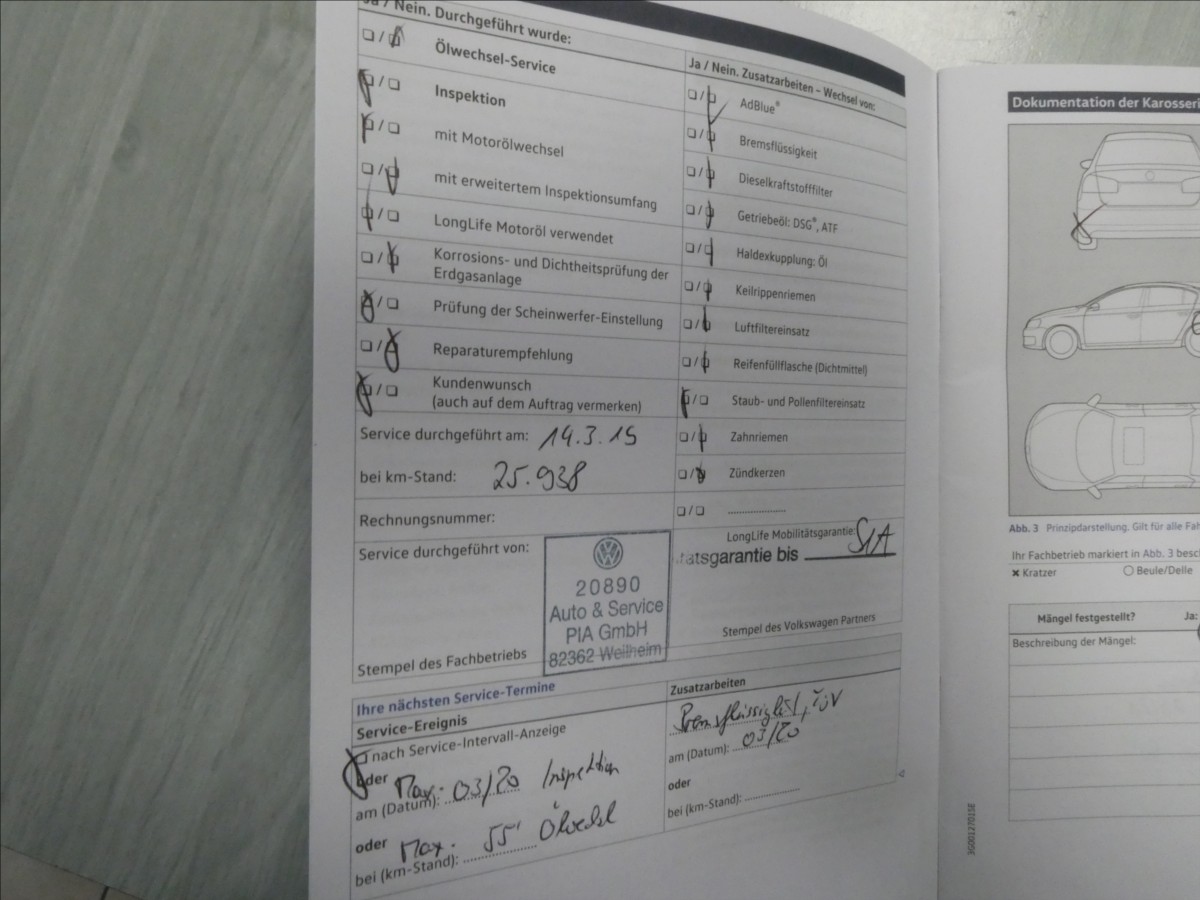 Ja / Nein. Durchgeführt wurde:
Ölwechsel-Service
Inspektion
mit Motorölwechsel
mit erweitertem Inspektionsumfang
LongLife Motoröl verwendet
Korrosions- und Dichtheitsprüfung der
Erdgasanlage
Prüfung der Scheinwerfer-Einstellung
Reparaturempfehlung
Kundenwunsch
(auch auf dem Auftrag vermerken)
Service durchgeführt am: 14.3.19
bei km-Stand: 25.938
Rechnungsnummer:
Service durchgeführt von:
20890
Auto & Service
PIA GmbH
82362 Weilheim
Stempel des Fachbetriebs
Ja / Nein. Zusatzarbeiten – Wechsel von:
AdBlue®
Bremsflüssigkeit
Dieselkraftstofffilter
Getriebeöl: DSG®, ATF
Haldexkupplung: Öl
Keilrippenriemen
Luftfiltereinsatz
Reifenfüllflasche (Dichtmittel)
Staub- und Pollenfiltereinsatz
Zahnriemen
Zündkerzen
LongLife Mobilitätsgarantie:
tätsgarantie bis
Stempel des Volkswagen Partners
Ihre nächsten Service-Termine
Service-Ereignis
nach Service-Intervall-Anzeige
oder Max. 03/20 Inspektion
am (Datum):
oder Max. 55' Ölwechsel
bei (km-Stand):
Zusatzarbeiten
Bremsflüssigkeit, TÜV
am (Datum): 03/20
oder
bei (km-Stand):
Dokumentation der Karosseri
Abb. 3 Prinzipdarstellung. Gilt für alle Fah
Ihr Fachbetrieb markiert in Abb. 3 besch
Kratzer Beule/Delle
Mängel festgestellt? Ja:
Beschreibung der Mängel:
3G0012701SE